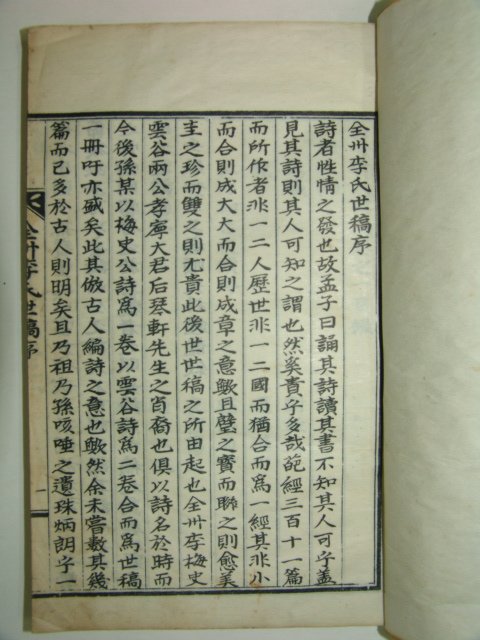 全州李氏世稿序
詩者性情之發也故孟子曰誦其詩讀其書不知其人可乎盖
見其詩則其人可知之謂也然奚貴乎多哉葩經三百十一篇
而所作者非一二人歷世非一二國而猶合而爲一經其非小
而合則成大大而合則成章之意歟且璧之寶而聯之則愈美
圭之珍而雙之則尤貴此後世世稿之所由起也全州李梅史
雲谷兩公孝寧大君后琴軒先生之肖裔也俱以詩名於時而
今後孫某以梅史公詩爲一卷以雲谷詩爲二卷合而爲世稿
一冊吁亦盛矣此其倣古人編詩之意也歟然余未嘗數其幾
篇而已多於古人則明矣且乃祖乃孫咳唾之遺珠炳朗乎一
全州李氏世稿序
一